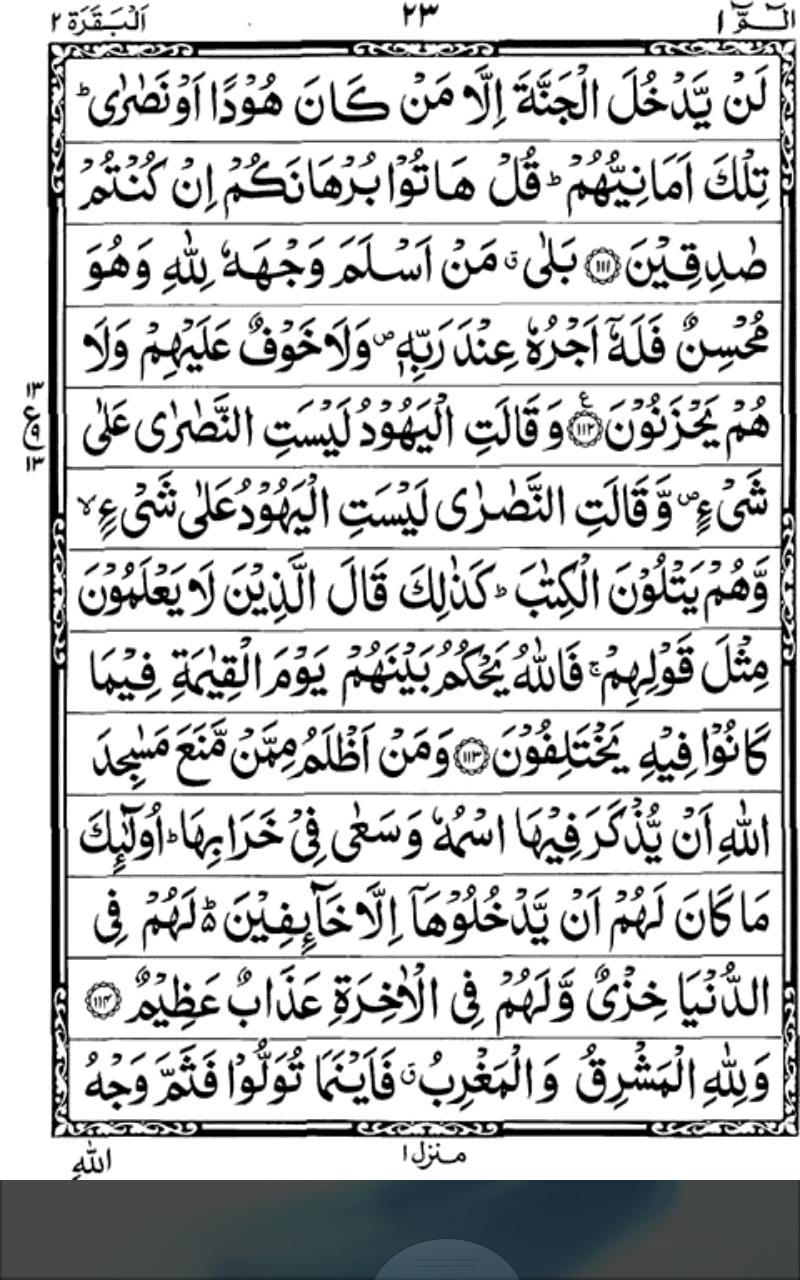 الٓمّٓ ١ ٢٣ اَلْبَقَرَة ٢
لَنْ يَّدْخُلَ الْجَنَّةَ اِلَّا مَنْ كَانَ هُوْدًا اَوْ نَصٰرٰى ؕ
تِلْكَ اَمَانِيُّهُمْ ؕ قُلْ هَاتُوْا بُرْهَانَكُمْ اِنْ كُنْتُمْ
صٰدِقِيْنَ ﴿۱۱۱﴾ بَلٰى ۗ مَنْ اَسْلَمَ وَجْهَهٗ لِلّٰهِ وَهُوَ
مُحْسِنٌ فَلَهٗۤ اَجْرُهٗ عِنْدَ رَبِّهٖ ۪ وَلَا خَوْفٌ عَلَيْهِمْ وَلَا
هُمْ يَحْزَنُوْنَ ﴿۱۱۲﴾ ع وَقَالَتِ الْيَهُوْدُ لَيْسَتِ النَّصٰرٰى عَلٰى
١٣
ع
٩
١٣
شَىْءٍ ۪ وَّقَالَتِ النَّصٰرٰى لَيْسَتِ الْيَهُوْدُ عَلٰى شَىْءٍ ۙ
وَّهُمْ يَتْلُوْنَ الْكِتٰبَ ؕ كَذٰلِكَ قَالَ الَّذِيْنَ لَا يَعْلَمُوْنَ
مِثْلَ قَوْلِهِمْ ۚ فَاللّٰهُ يَحْكُمُ بَيْنَهُمْ يَوْمَ الْقِيٰمَةِ فِيْمَا
كَانُوْا فِيْهِ يَخْتَلِفُوْنَ ﴿۱۱۳﴾ وَمَنْ اَظْلَمُ مِمَّنْ مَّنَعَ مَسٰجِدَ
اللّٰهِ اَنْ يُّذْكَرَ فِيْهَا اسْمُهٗ وَسَعٰى فِىْ خَرَابِهَا ؕ اُولٰٓئِكَ
مَا كَانَ لَهُمْ اَنْ يَّدْخُلُوْهَاۤ اِلَّا خَآئِفِيْنَ ؕ۬ لَهُمْ فِى
الدُّنْيَا خِزْىٌ وَّلَهُمْ فِى الْاٰخِرَةِ عَذَابٌ عَظِيْمٌ ﴿۱۱۴﴾
وَلِلّٰهِ الْمَشْرِقُ وَالْمَغْرِبُ ۗ فَاَيْنَمَا تُوَلُّوْا فَثَمَّ وَجْهُ
منزل ١
اللّٰهِ